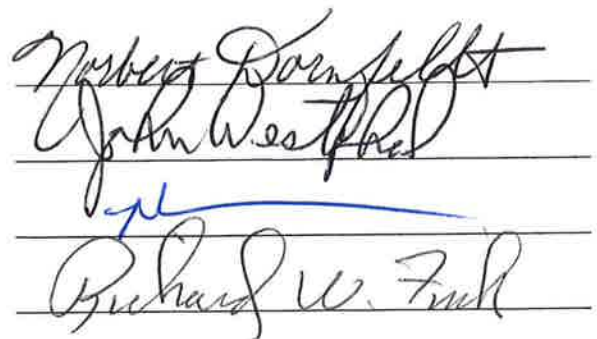 Norbert Dornfeldt
John Westphal
Richard W.